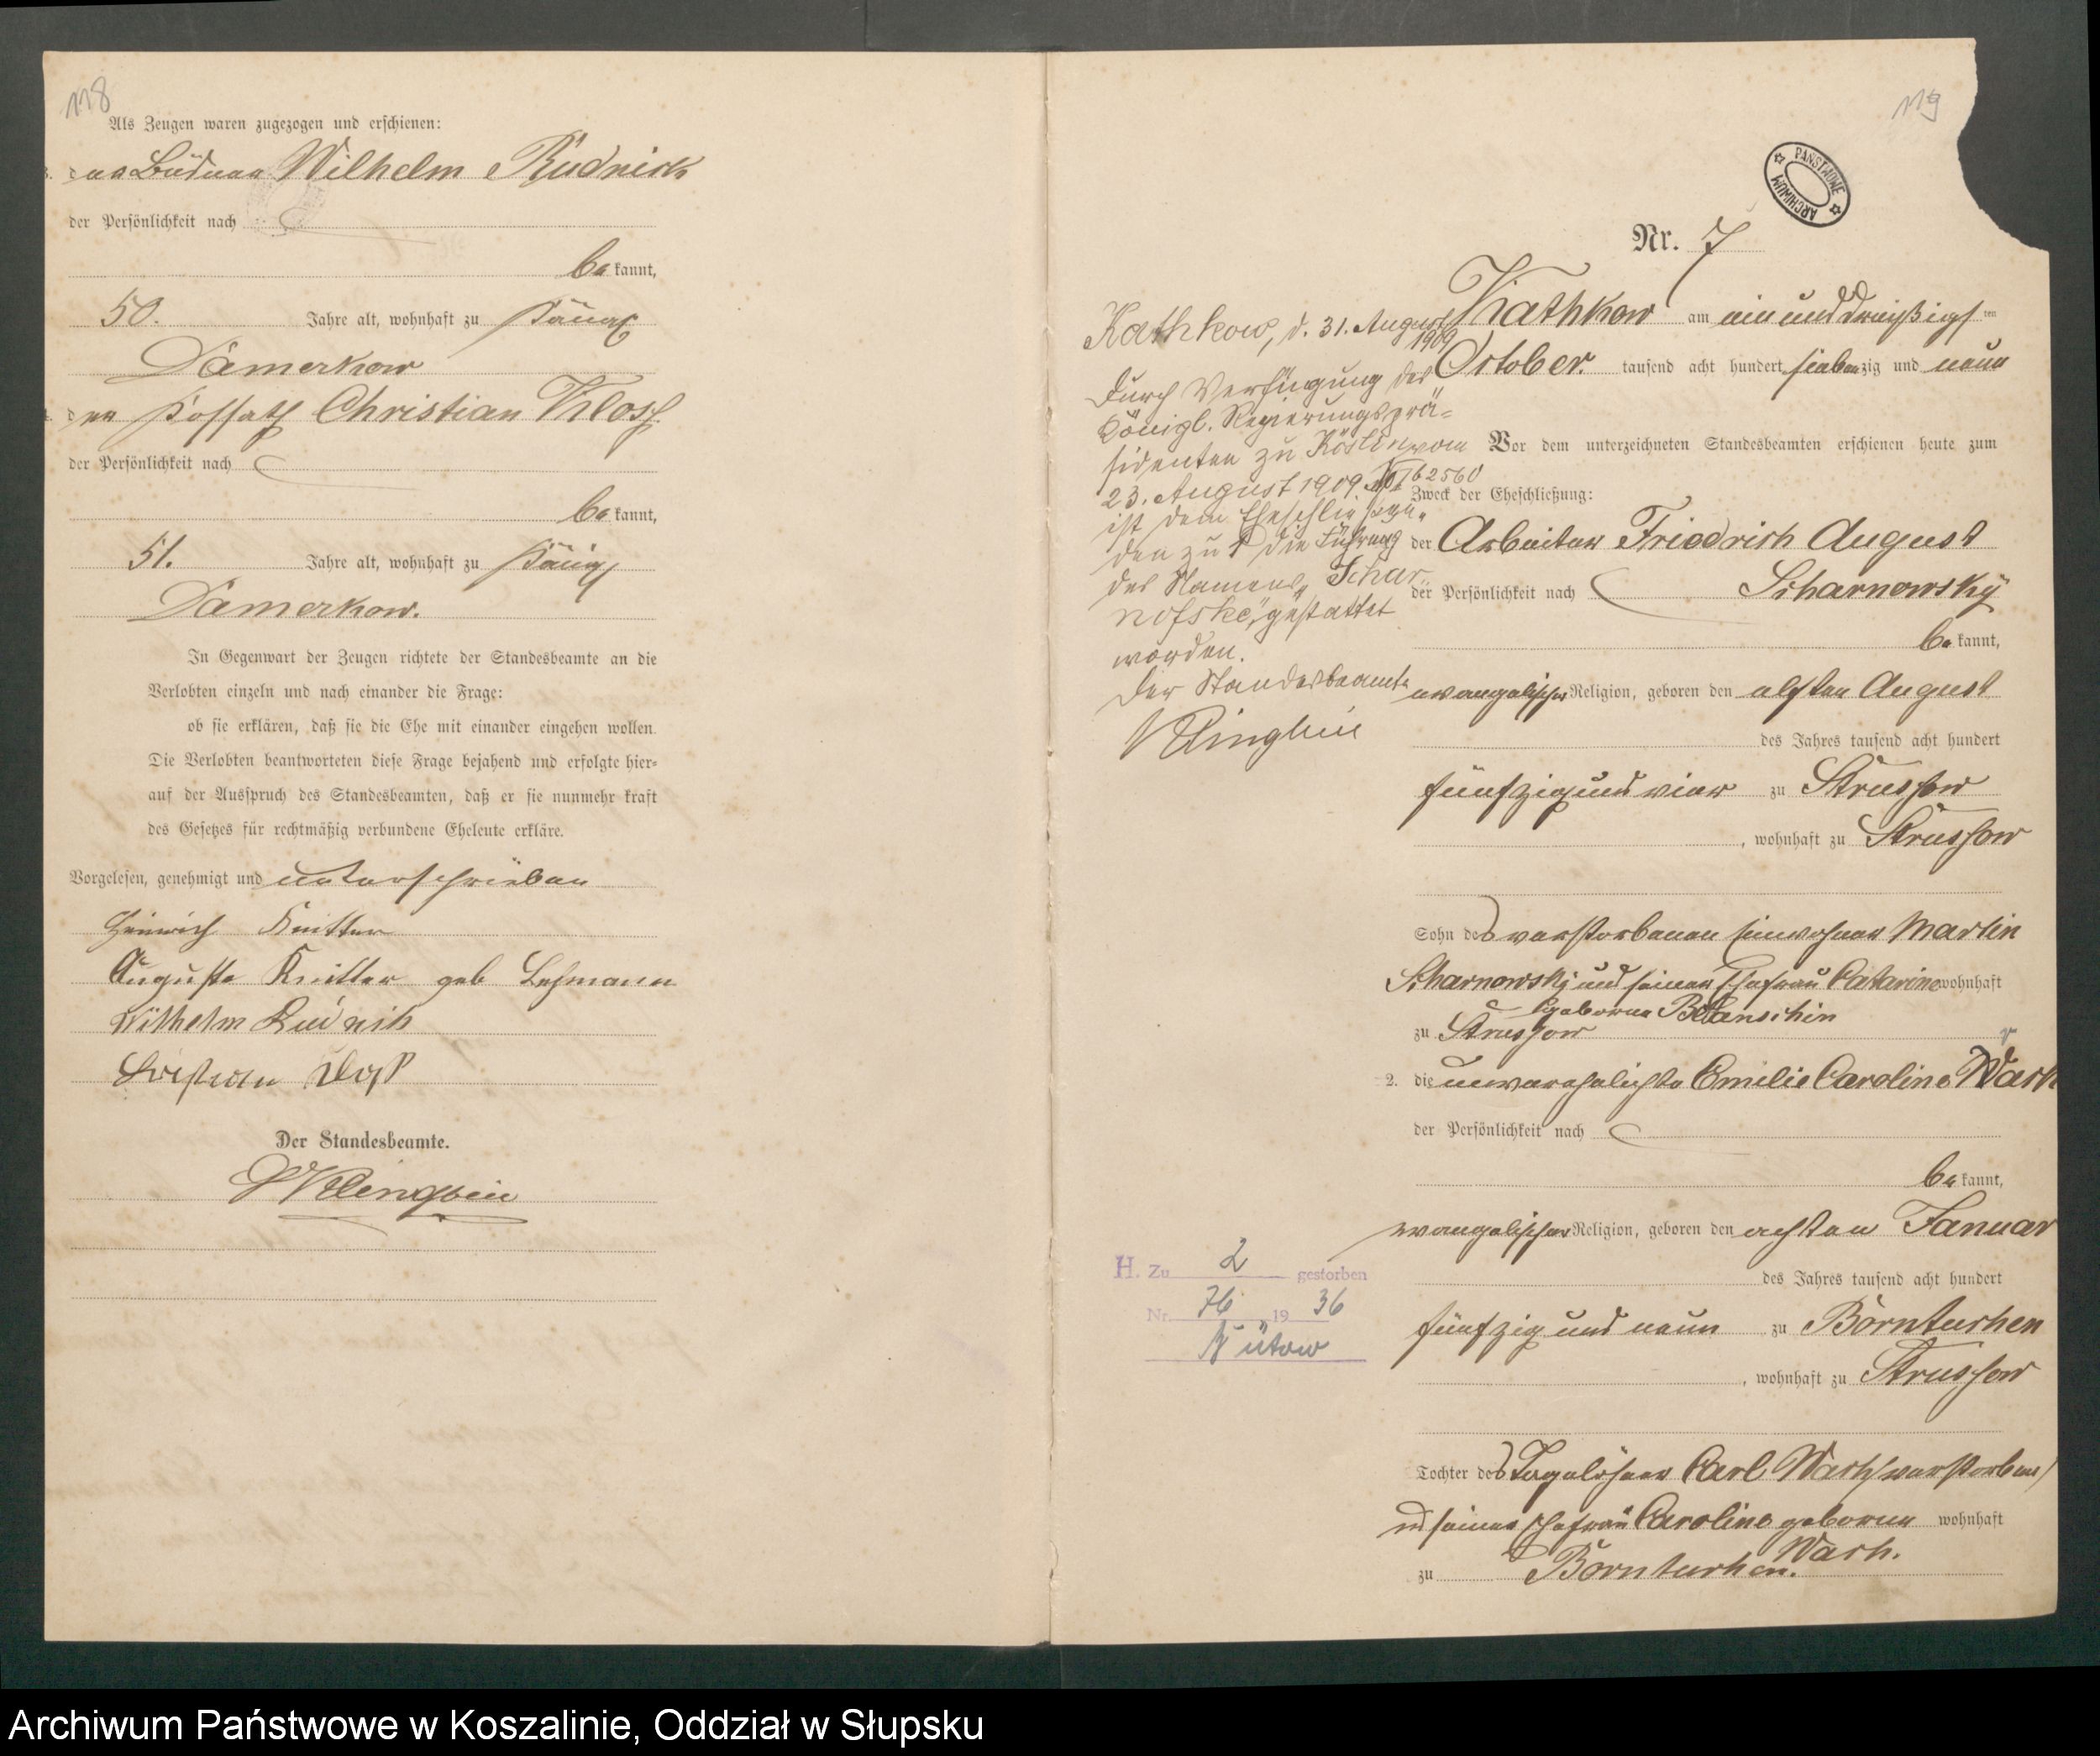 118
Als Zeugen waren zugezogen und erschienen:
3. der Büdner Wilhelm Rudnick
der Persönlichkeit nach
be kannt,
50. Jahre alt, wohnhaft zu
Damerkow
4. den Kossath Christian Kloss.
der Persönlichkeit nach
be kannt,
51. Jahre alt, wohnhaft zu
Damerkow.
In Gegenwart der Zeugen richtete der Standesbeamte an die
Verlobten einzeln und nach einander die Frage:
ob sie erklären, daß sie die Ehe mit einander eingehen wollen.
Die Verlobten beantworteten diese Frage bejahend und erfolgte hier-
auf der Ausspruch des Standesbeamten, daß er sie nunmehr kraft
des Gesetzes für rechtmäßig verbundene Eheleute erkläre.
Vorgelesen, genehmigt und unterschrieben
Heinrich Knitter
Auguste Knitter geb Lehmann
Wilhelm Rudnik
Der Standesbeamte.
Klingbeil
119
PAŃSTWOWE ARCHIWUM
Nr. 7
Kathkow am ein und dreißigs ten
October tausend acht hundert sieben zig und neun
Kathkow, d. 31. August
1909
Durch Verfügung des
Königl. Regierungsprä-
sidenten zu Köslin vom
23. August 1909
ist dem Eheschließen-
den zu 1 die Führung
des Namens „Schar-
nofske“ gestattet
worden.
Der Standesbeamte
Klingbeil
Vor dem unterzeichneten Standesbeamten erschienen heute zum
Zweck der Eheschließung:
der Arbeiter Friedrich August
der Persönlichkeit nach Scharnowsky
be kannt,
evangelischer Religion, geboren den elften August
des Jahres tausend acht hundert
fünfzig und vier zu Strussow
, wohnhaft zu Strussow
Sohn des verstorbenen Einwohner Martin
Scharnowsky und seiner Ehefrau Catarine wohnhaft
geborene
zu Strussow
2. die unverehelichte Emilie Caroline Wach
der Persönlichkeit nach
be kannt,
evangelischer Religion, geboren den achten Januar
des Jahres tausend acht hundert
fünfzig und neun zu Börntuchen
, wohnhaft zu Strussow
H. Zu 2 gestorben
Nr. 76 19 36
Bütow
Tochter des Tagelöhner Carl Wach (verstorben)
und seiner Ehefrau Caroline geborene wohnhaft
Wach.
zu Börntuchen.
Archiwum Państwowe w Koszalinie, Oddział w Słupsku